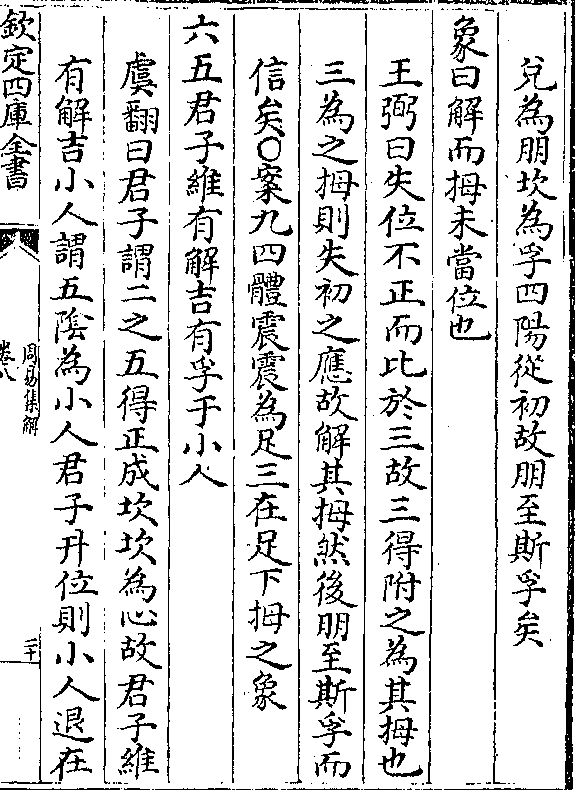 兌為朋坎為孚四陽從初故朋至斯孚矣
象曰解而拇未當位也
王弼曰失位不正而比於三故三得附之為其拇也
三為之拇則失初之應故解其拇然後朋至斯孚而
信矣○案九四體震震為足三在足下拇之象
六五君子維有解吉有孚于小人
虞翻曰君子謂二之五得正成坎坎為心故君子維
有解吉小人謂五陰為小人君子升位則小人退在
欽定四庫全書
周易集解
卷八
二十